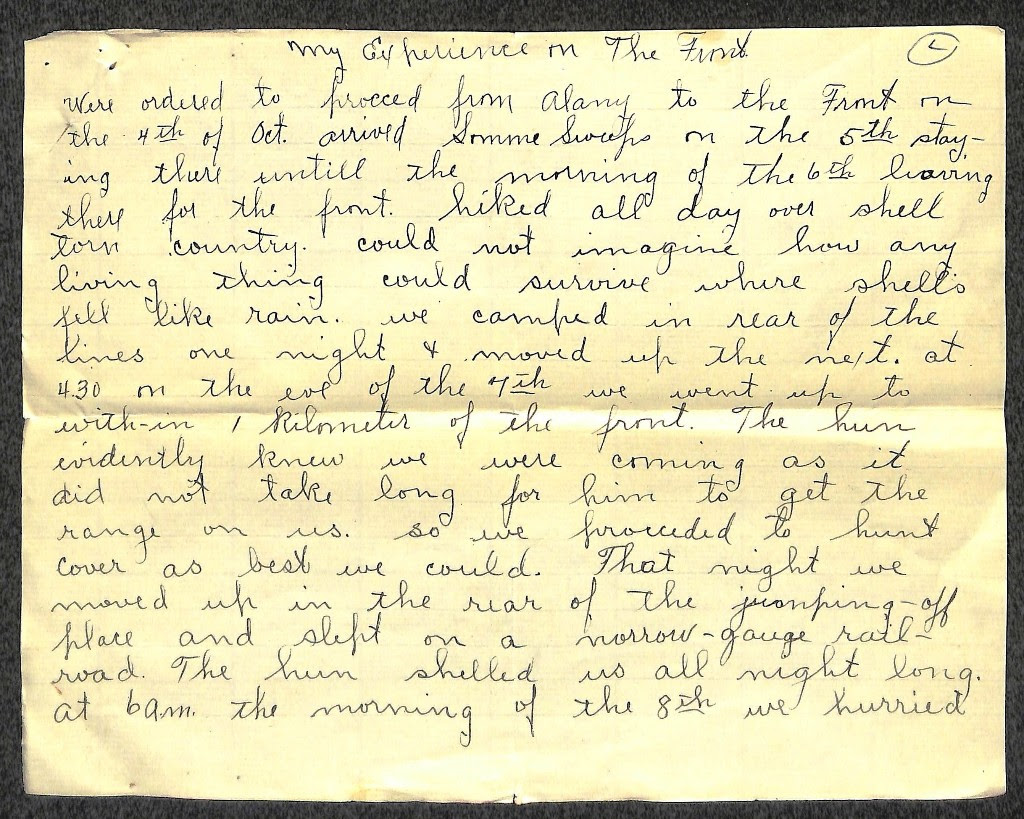 My Experience on The Front
Were ordered to procced from Alany to the Front on
the 4th of Oct. arrived Somme Sweeps on the 5th stay-
ing there untill the morning of the 6th leaving
there for the front. hiked all day over shell
torn country. could not imagine how any
living thing could survive where shells
fell like rain. we camped in rear of the
lines one night & moved up the next. at
4.30 on the eve of the 7th we went up to
with-in 1 Kilometer of the front. The hun
evidently knew we were coming as it
did not take long for him to get the
range on us. so we procceded to hunt
cover as best we could. That night we
moved up in the rear of the jumping-off
place and slept on a norrow-gauge rail-
road. The hun shelled us all night long.
at 6 a.m. the morning of the 8th we hurried